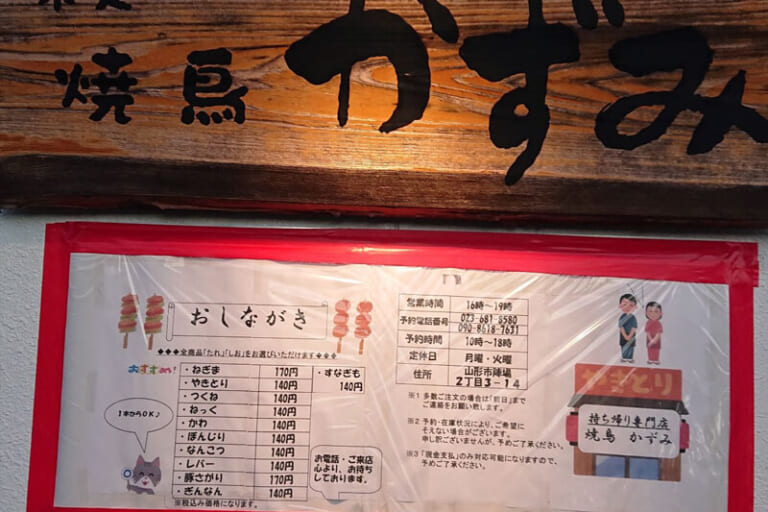 焼鳥 かずみ
おしながき
◆◆◆全商品「たれ」「しお」をお選びいただけます◆◆◆
おすすめ!
・ねぎま 170円
・やきとり 140円
・つくね 140円
・ねっく 140円
・かわ 140円
・ぼんじり 140円
・なんこつ 140円
・レバー 140円
・豚さがり 170円
・ぎんなん 140円
・すなぎも
140円
※税込み価格になります。
1本からOK♪
お電話・ご来店
心より、お待ち
しております。
営業時間 16時~19時
予約電話番号 073-681-8580
090-8618-7631
予約時間 10時~18時
定休日 月曜・火曜
住所 山形市陣場
2丁目3-14
※1 多数ご注文の場合は「前日」まで
ご連絡をお願い致します。
※2 予約・在庫状況により、ご希望に
そえない場合がございます。
申し訳ございませんが、予めご了承ください。
※3「現金支払」のみ対応可能になりますので、
予めご了承ください。
やきとり
持ち帰り専門店
焼鳥 かずみ